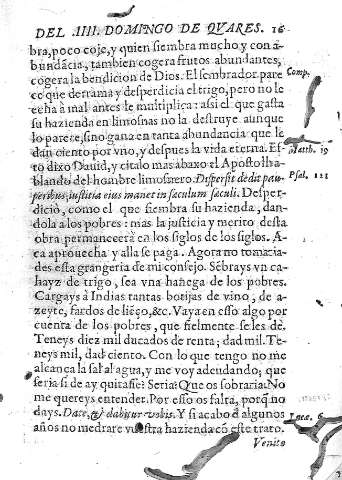 DEL .IIII. DOMINGO DE QVARES. 16
bra, poco coje, y quien siembra mucho y con a-
bundãcia, tambien cogera frutos abundantes,
cogera la bendicion de Dios. El sembrador pare
ce que derrama y desperdicia el trigo, pero no le
echa à mal antes le multiplica: assi el que gasta
su hazienda en limosnas no la destruye aunque
lo parece, sino gana en tanta abundancia que le
dan ciento por vno, y despues la vida eterna. Es-
to dixo Dauid, y citalo mas abaxo el Apostol ha-
blando del hombre limosnero. Dispersit dedit pau-
peribus, iustitia eius manet in sæculum sæculi. Desper-
dició, como el que siembra su hazienda, dan-
dola a los pobres: mas la justicia y merito desta
obra permanecerà en los siglos de los siglos. A-
ca aprouecha y alla se paga. Agora no tomaria-
des esta grangeria de mi consejo. Sẽbrays vn ca-
hayz de trigo, sea vna hanega de los pobres.
Cargays à Indias tantas botijas de vino, de a-
zeyte, fardos de liẽço, &c. Vaya en esso algo por
cuenta de los pobres, que fielmente se les dè.
Teneys diez mil ducados de renta; dad mil. Te-
neys mil, dad ciento. Con lo que tengo no me
alcança la sal al agua, y me voy adeudando; que
seria si de ay quitasse? Seria: Que os sobraria. No
me quereys entender. Por esso os falta, porq̃ no
days. Date, & dabitur vobis. Y si acabo d̃ algunos
años no medrare vuestra hazienda cõ este trato.
Venite
Comp.
Matth. 19
Psal. 111
Luca. 6.